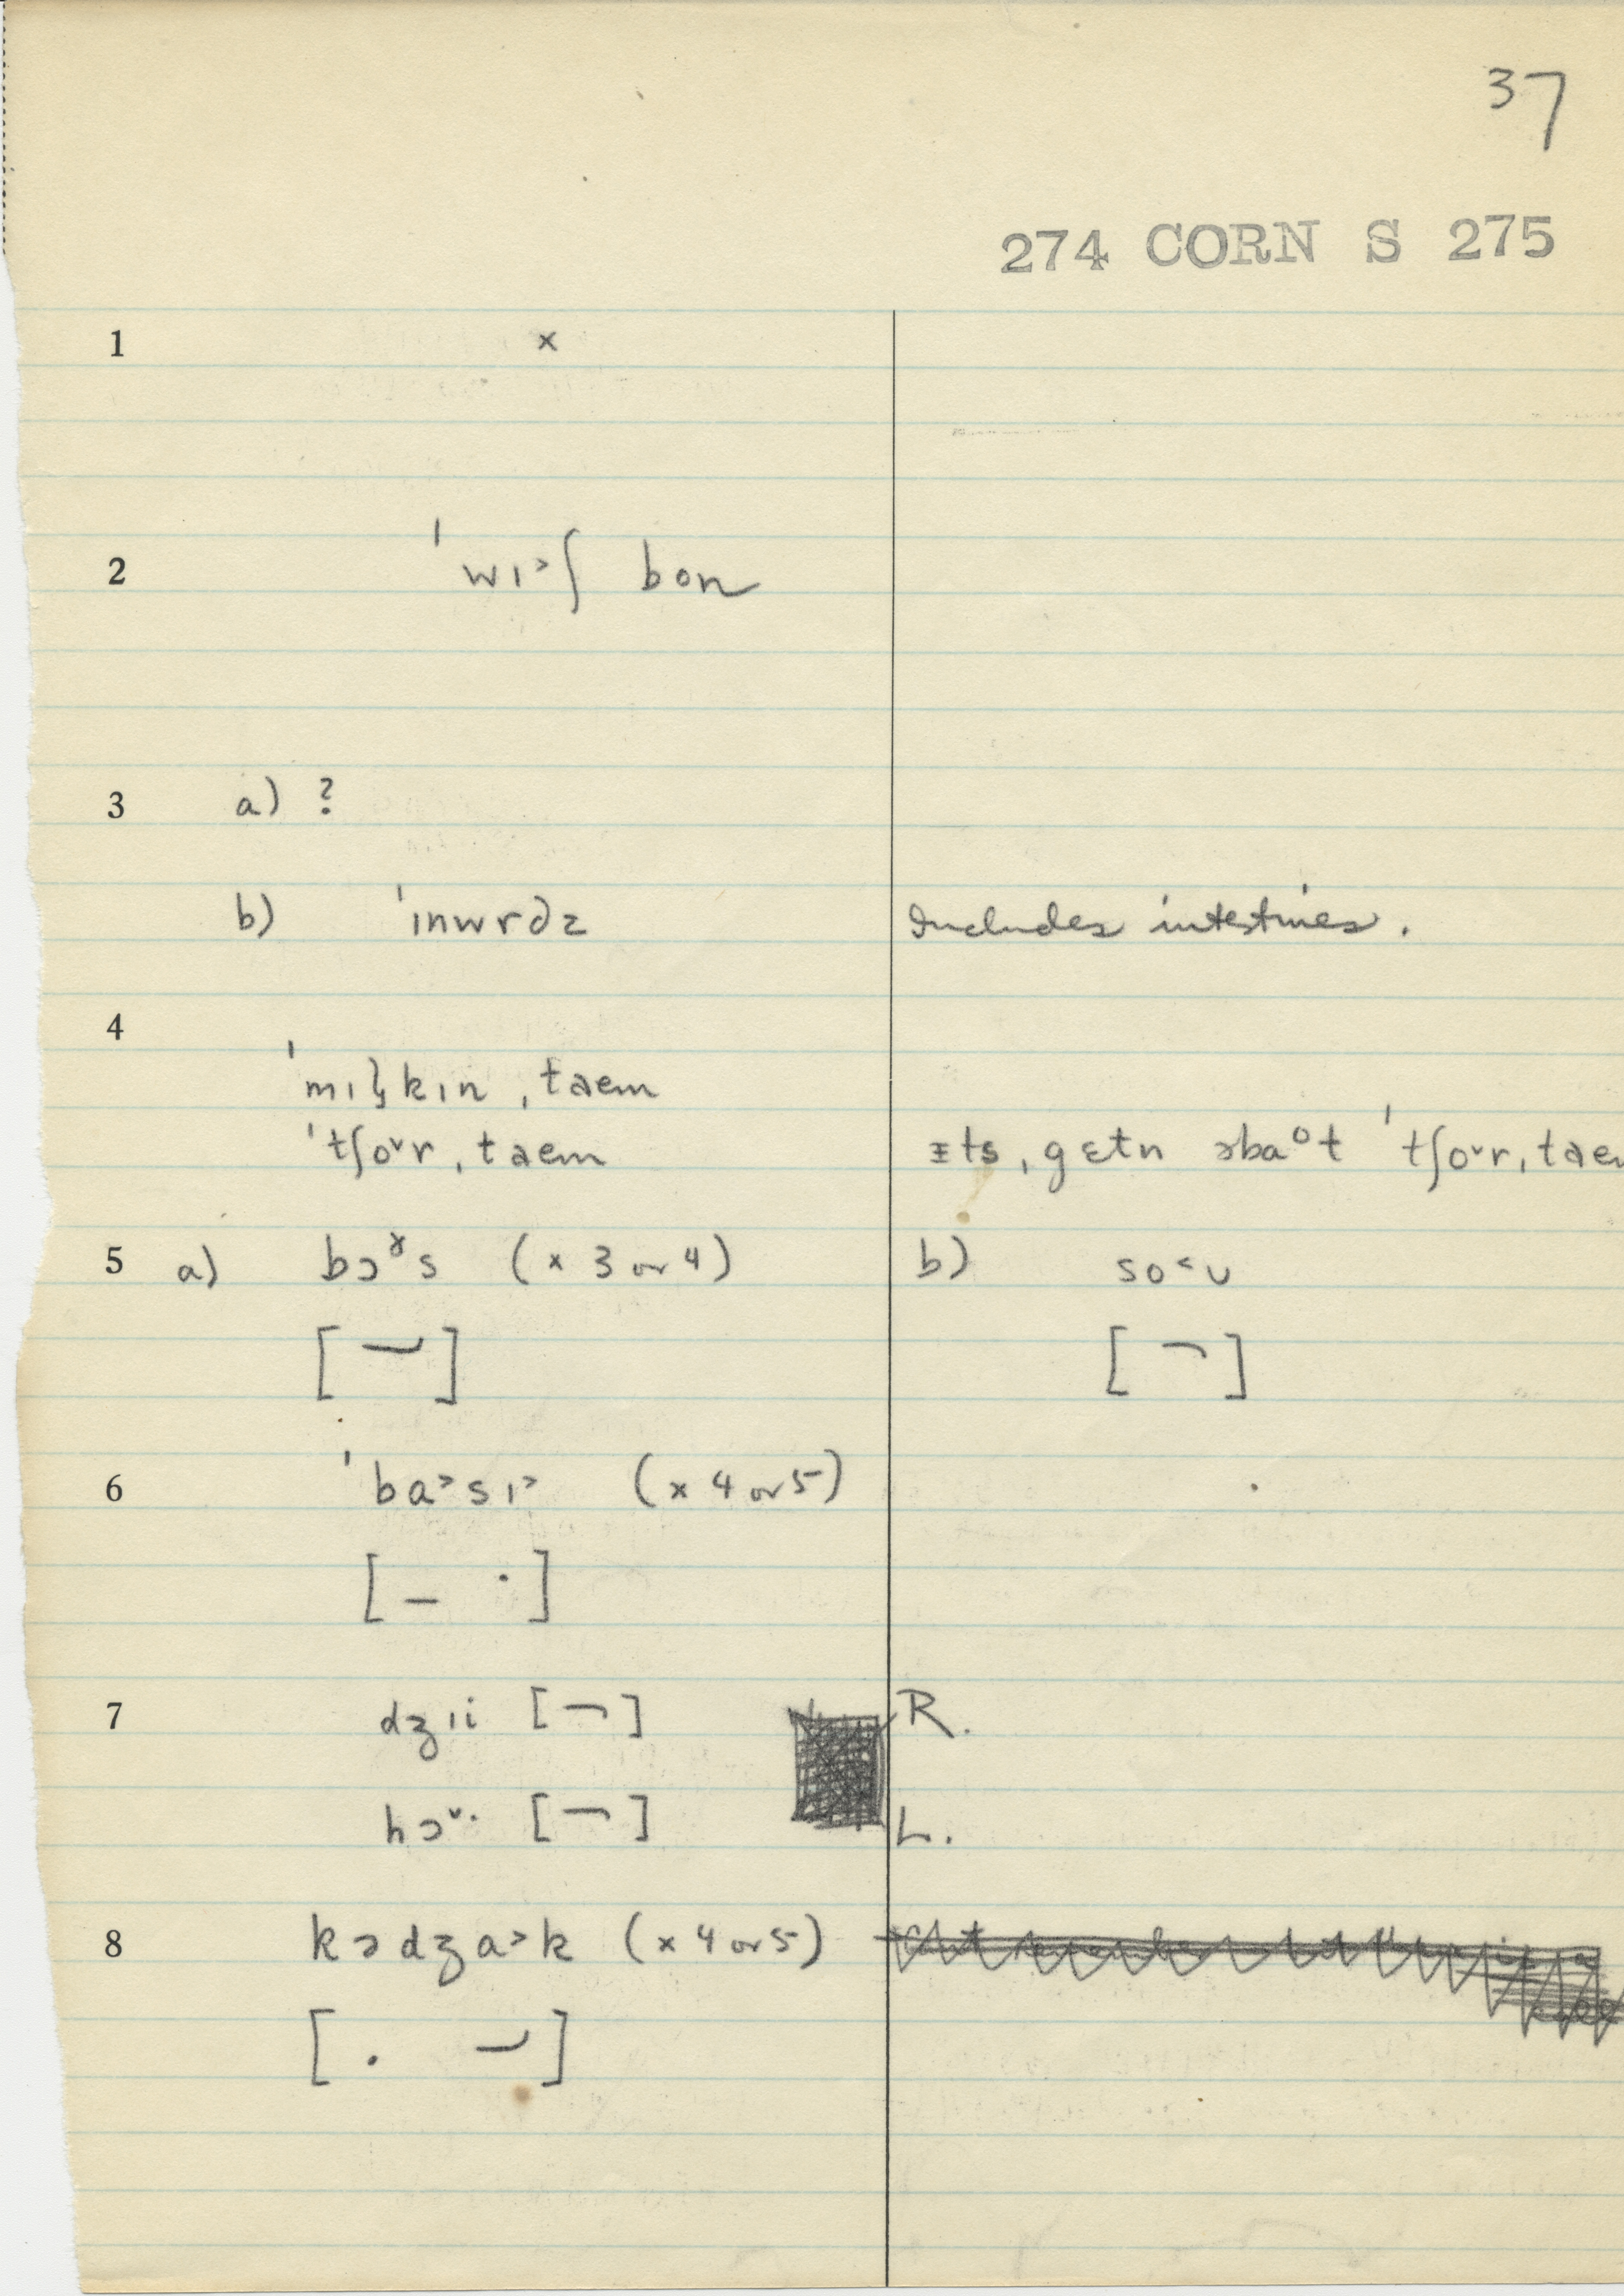 37
274 CORN S 275
1 x
2 ˈwɪ˃ʃ bon
3 a) ?
b) ˈɪnwrdz Includes intestines.
4
ˈmɪl̡kɪn ˌtaem
ˈtʃoᵛr ˌtaem ɪts ˌgɛtn əbaᴼt ˈtʃoᵛr ˌtaem
5 a) bɔˠs (x 3 or 4) b) so˂ʊ
[ ] [ ]
6 ˈba˃sɪ˃ (x 4 or 5)
[ – · ]
7 dʒɪi [ ¬ ] R.
hɔᵛ· [ ¬ ] L.
8 kədʒa˃k (x 4 or 5)
[ . ]